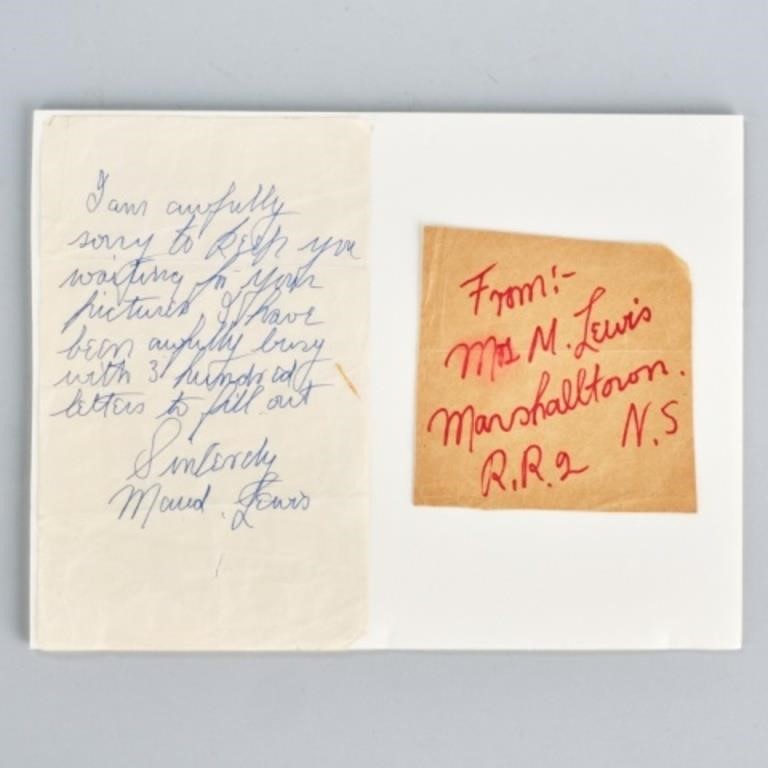 I am awfully
sorry to keep you
waiting for your
pictures I have
been awfully busy
with 3 hundred
letters to fill out
Sincerely
Maud. Lewis
From:-
Mrs M. Lewis
Marshalltown.
N.S
R.R.2